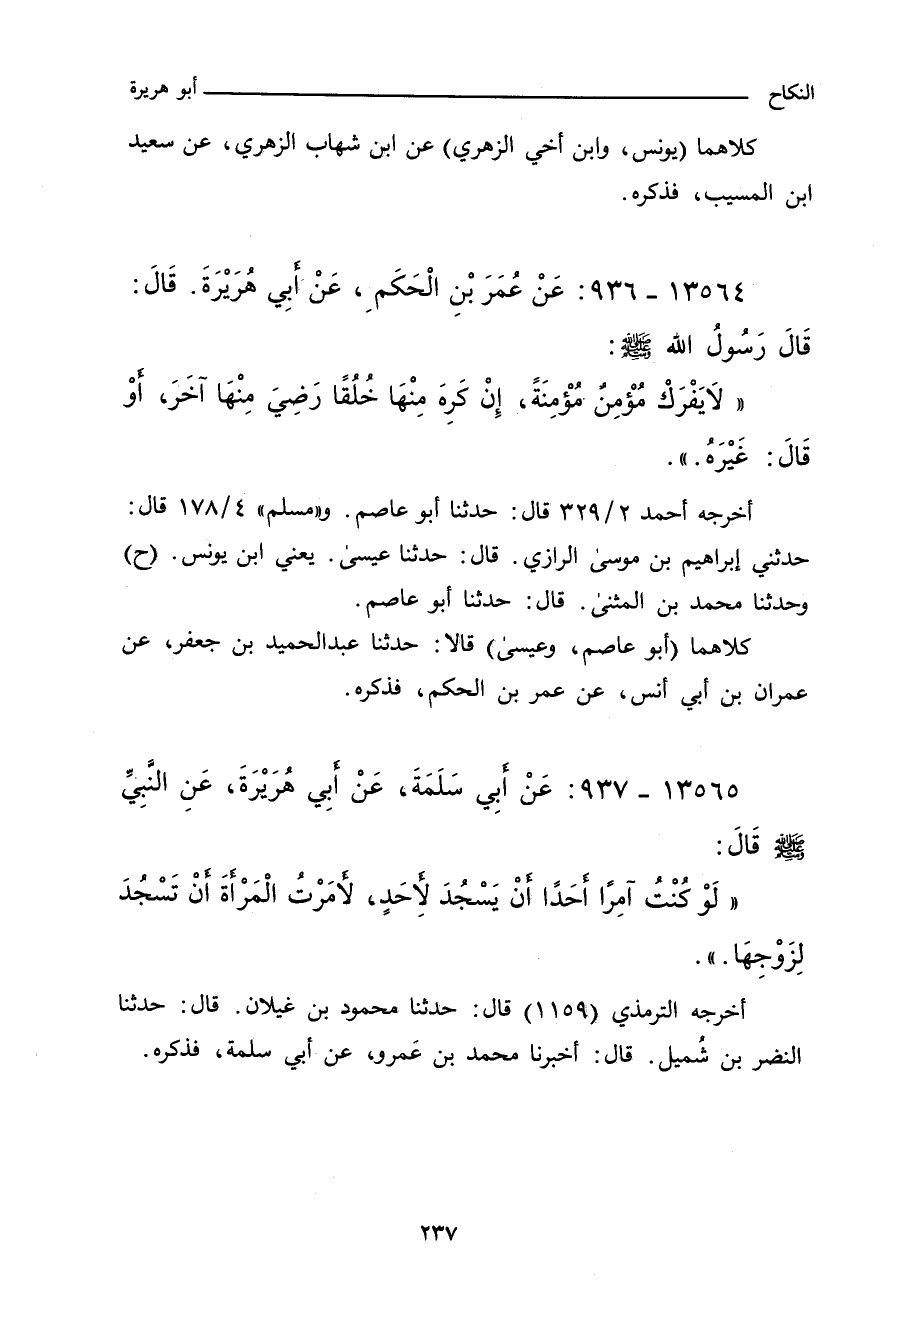 النكاح ــــــــــ أبو هريرة
كلاهما (يونس، وابن أخي الزهري) عن ابن شهاب الزهري، عن سعيد
ابن المسيب، فذكره.
١٣٥٦٤ ـ ٩٣٦: عَنْ عُمَرَ بْنِ الْحَكَمِ، عَنْ أَبِي هُرَيْرَةَ. قَالَ:
قَالَ رَسُولُ الله ﷺ:
« لَايَفْرَكْ مُؤْمِنٌ مُؤْمِنَةً، إِنْ كَرِهَ مِنْهَا خُلُقًا رَضِيَ مِنْهَا آخَرَ، أَوْ
قَالَ: غَيْرَهُ.».
أخرجه أحمد ٣٢٩/٢ قال: حدثنا أبو عاصم. و«مسلم» ١٧٨/٤ قال:
حدثني إبراهيم بن موسىٰ الرازي. قال: حدثنا عيسىٰ. يعني ابن يونس. (ح)
وحدثنا محمد بن المثنىٰ. قال: حدثنا أبو عاصم.
كلاهما (أبو عاصم، وعيسىٰ) قالا: حدثنا عبدالحميد بن جعفر، عن
عمران بن أبي أنس، عن عمر بن الحكم، فذكره.
١٣٥٦٥ ـ ٩٣٧: عَنْ أَبِي سَلَمَةَ، عَنْ أَبِي هُرَيْرَةَ، عَنِ النَّبِيِّ
ﷺ قَالَ:
« لَوْ كُنْتُ آمِرًا أَحَدًا أَنْ يَسْجُدَ لِأَحَدٍ، لَأَمَرْتُ الْمَرْأَةَ أَنْ تَسْجُدَ
لِزَوْجِهَا.».
أخرجه الترمذي (١١٥٩) قال: حدثنا محمود بن غيلان. قال: حدثنا
النضر بن شُميل. قال: أخبرنا محمد بن عَمرو، عن أبي سلمة، فذكره.
٢٣٧